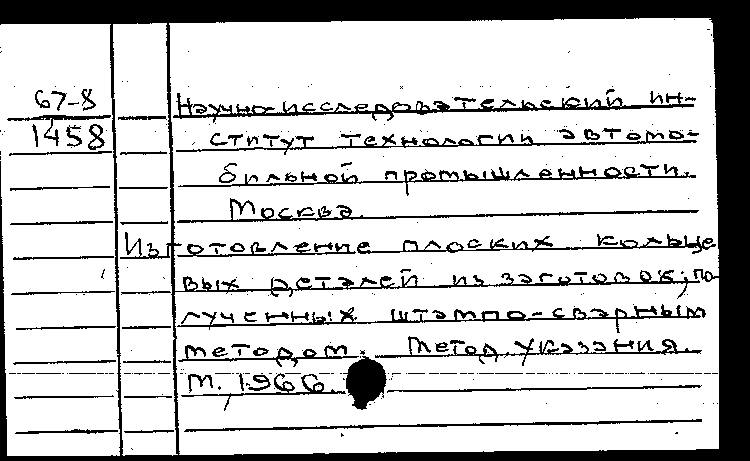 67-8
1458
Научно-исследовательский ин-
ститут технологии автомо-
бильной промышленности.
Москва.
Изготовление плоских кольце
вых деталей из заготовок, по-
лученных штампо-сварным
методом. Метод. указания.
М., 1966.